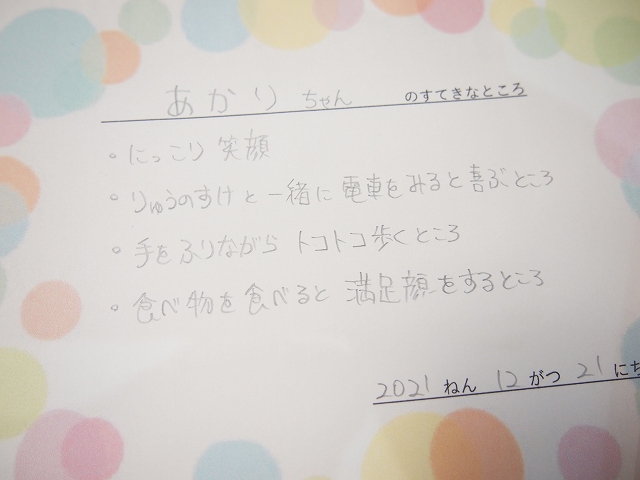 あかり ちゃん のすてきなところ
・にっこり 笑顔
・りゅうのすけと一緒に電車をみると喜ぶところ
・手をふりながら トコトコ歩くところ
・食べ物を食べると 満足顔をするところ
2021 ねん 12 がつ 21 にち